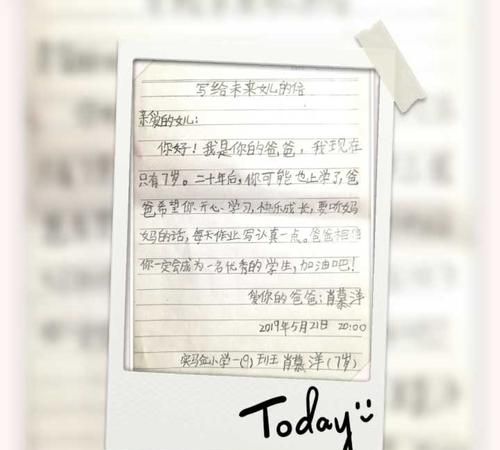 写给未来女儿的信
亲爱的女儿:
你好!我是你的爸爸,我现在
只有7岁。二十年后,你可能也上学了,爸
爸希望你开心学习,快乐成长,要听妈
妈的话,每天作业写认真一点。爸爸相信
你一定会成为一名优秀的学生,加油吧!
爱你的爸爸:肖慕洋
2019年5月21日 20:00
实马仓小学一(9)刊王 肖慕洋(7岁)
Today